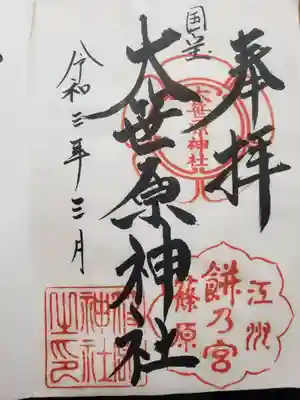 奉拝
国宝
大笹原神社
令和三年三月
大笹原神社
江州
餅乃宮
篠原